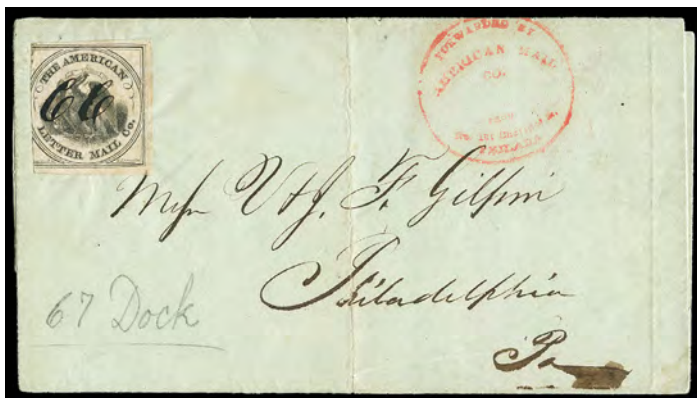 THE AMERICAN
LETTER MAIL Co.
FORWARDED BY
AMERICAN MAIL
CO.
FROM
PHILADA
F. Gilpin
Philadelphia
Pa
67 Dock